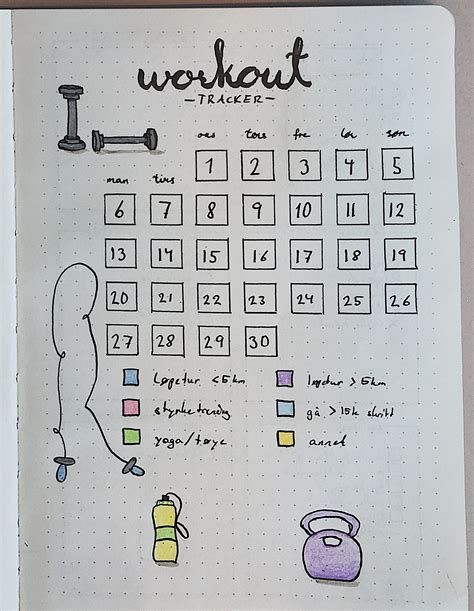 workout
- TRACKER -
ons tors fre lør søn
1 2 3 4 5
man tirs
6 7 8 9 10 11 12
13 14 15 16 17 18 19
20 21 22 23 24 25 26
27 28 29 30
løpetur <5km løpetur >5km
styrketrening gå >15k skritt
yoga/tøye annet